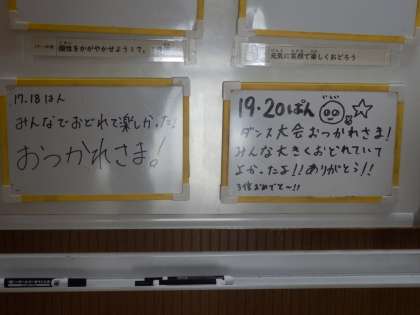 個性をかがやかせようで。
元気に笑顔で楽しくおどろう
17.18はん
みんなでおどれて楽しかった。
おつかれさま!
19・20ぱん
ダンス大会おつかれさま!
みんな大きくおどれていて
よかったよ!!ありがとう!!
3位おめでと〜!!